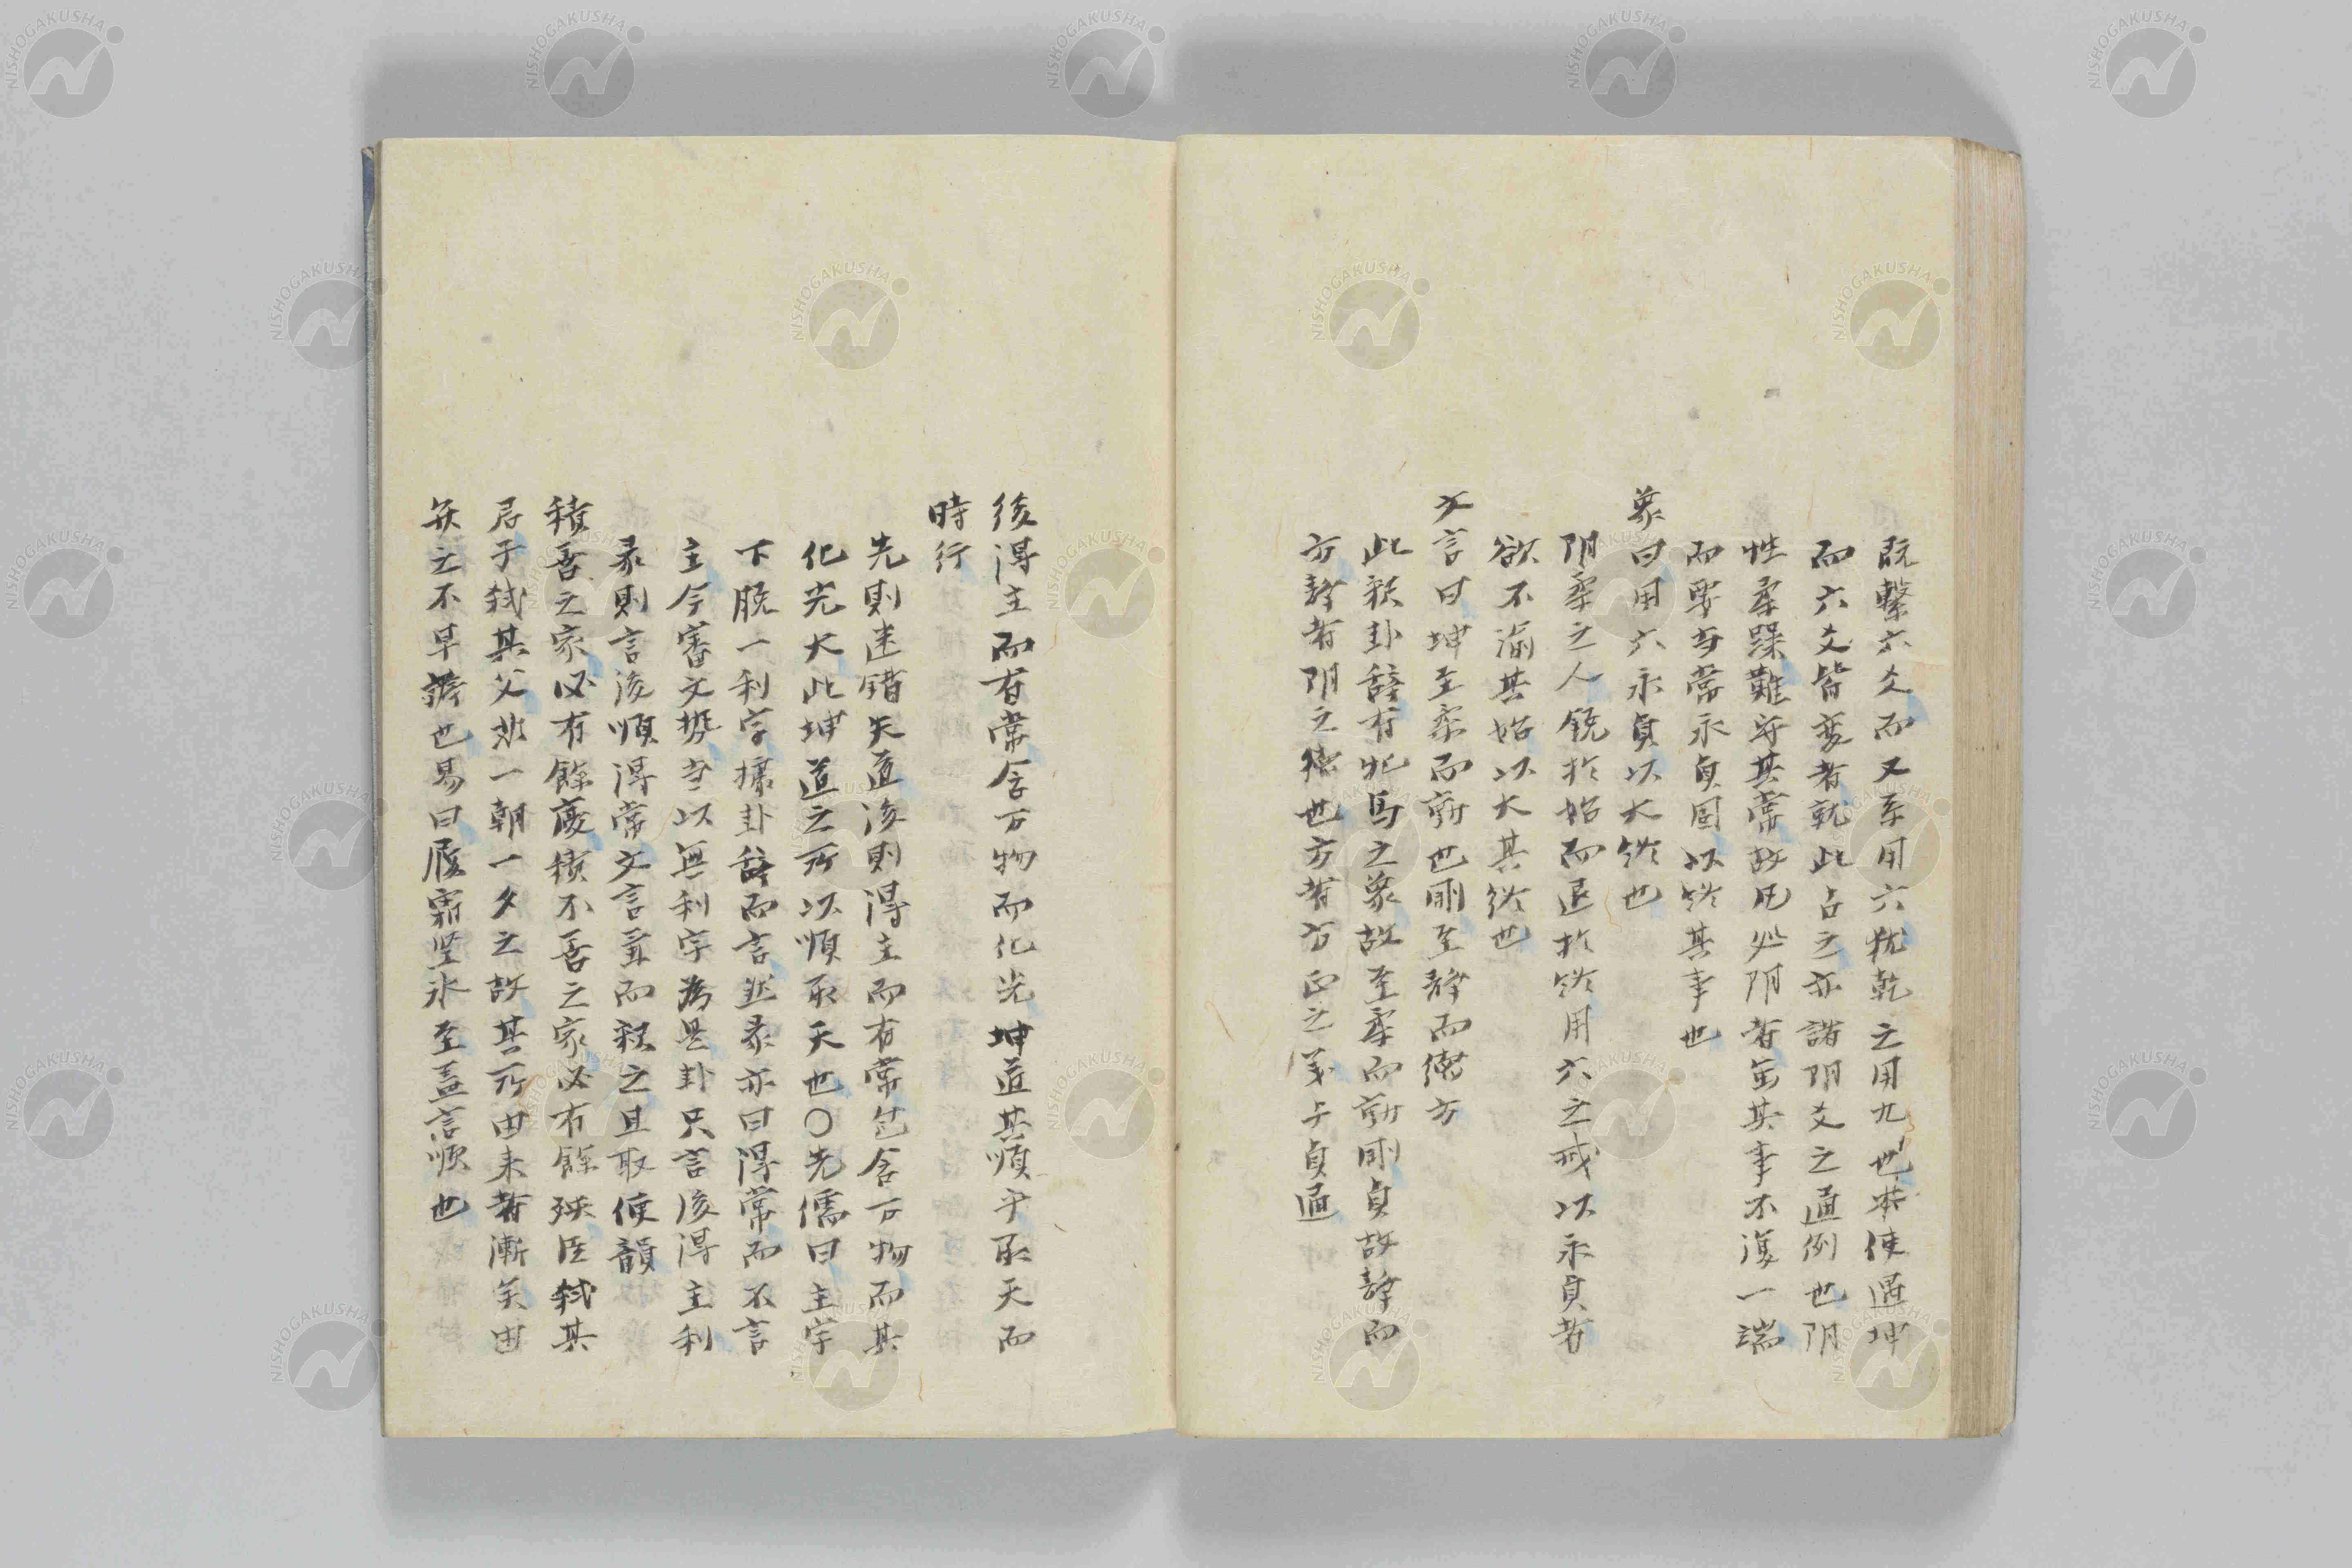 既繋六爻而又系用六猶乾之用九也若使遇坤
而六爻皆変者就此占之亦諸阴爻之通例也阴
性柔躁難守其常故凡処阴者当其事不復一端
而要守常永貞固以終其事也
象曰用六永貞以大終也
阴柔之人銳於始而退於終用六之戒以永貞者
欲不渝其始以大其終也
文言曰坤至柔而動也剛至静而徳方
此釈卦辞有牝馬之象故至柔而動剛貞故静而
方静者阴之徳也方者方正之義与貞通
後得主而有常含万物而化光坤道其順乎承天而
時行
先則迷錯失道後則得主而有常包含万物而其
化光大此坤道之所以順承天也〇先儒曰主字
下脱一利字據卦辞而言然彖亦曰得常而不言
主今審文勢当以無利字為是卦只言後得主利
彖則言後順得常文言並而釈之且取使韻
積善之家必有餘慶積不善之家必有餘殃臣弑其
君子弑其父非一朝一夕之故其所由来者漸矣由
弁之不早辨也易曰履霜堅氷至蓋言順也
NISHOGAKUSHA